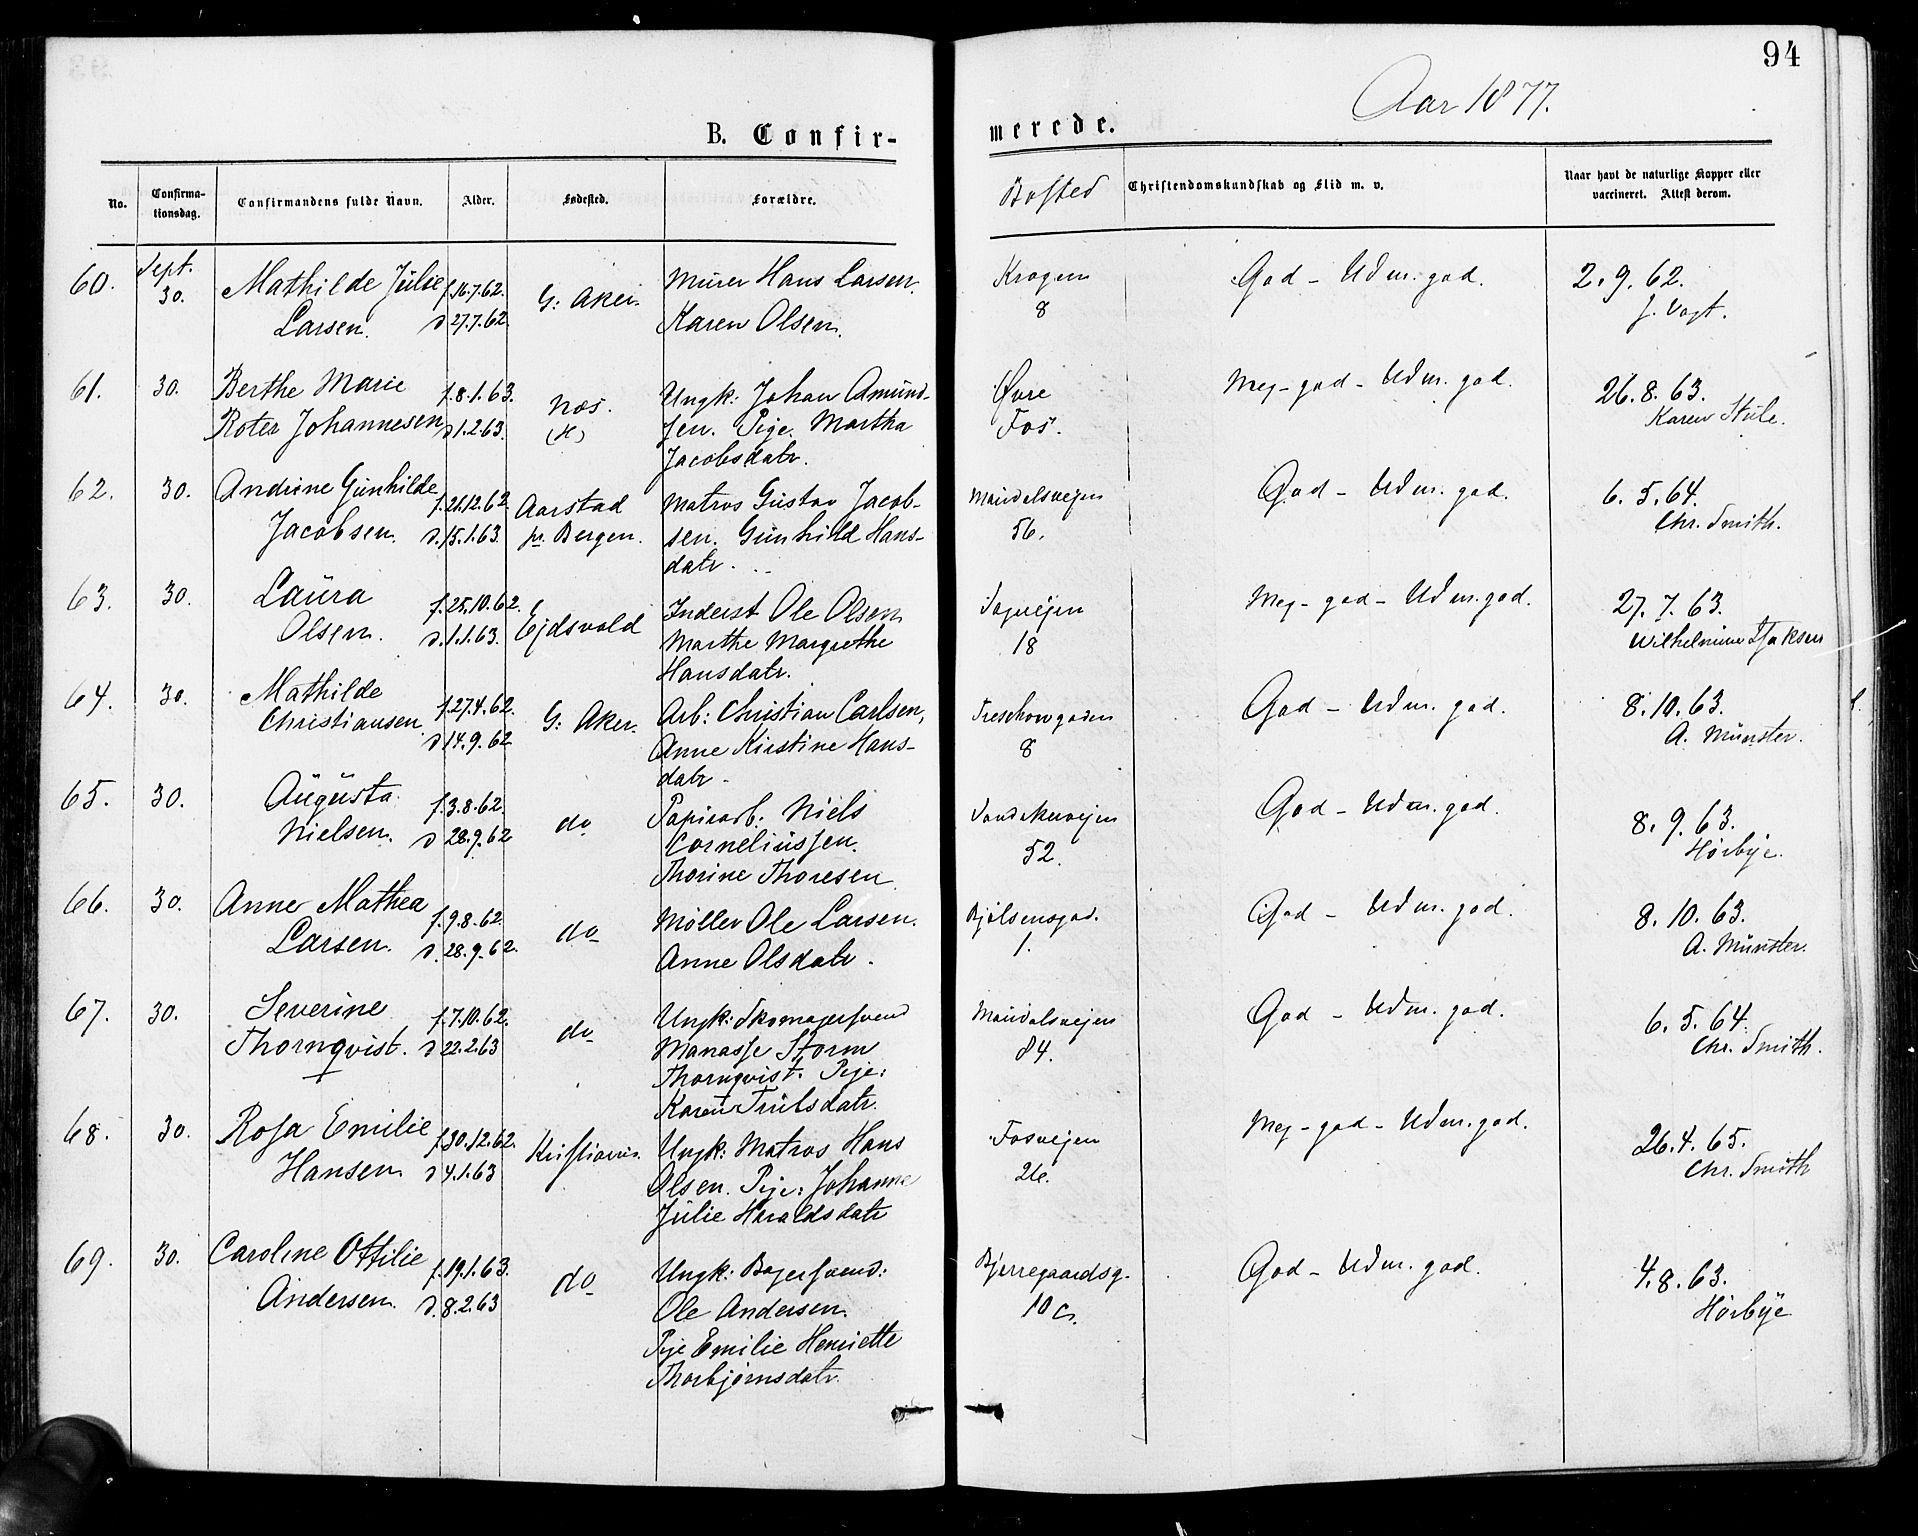 94
Aar 1877.
B. Confir-
merede.
No.
Confirma-
tionsdag.
Confirmandens fulde Navn.
Alder.
Fødested.
Forældre.
Bosted
Christendomskundskab og Flid m. v.
Naar havt de naturlige Kopper eller
vaccineret. Attest derom.
60.
Sept.
30.
Mathilde Julie
Larsen.
f. 16.7.62.
d 27.7.62.
G: Aker.
Murer Hans Larsen.
Karen Olsen.
Krogen
8
God - Udm. god.
2. 9. 62.
J. Vogt.
61.
30.
Berthe Marie
Roter Johannesen
f. 8.1.63.
d 1.2.63.
Næs.
(H)
Ungk: Johan Amund-
sen. Pige. Martha
Jacobsdatr.
Øvre
Fos.
Meg-god - Udm. god.
26. 8. 63.
Karen
62.
30.
Andrine Gunhilde
Jacobsen.
f. 21.12.62
d. 15.1.63.
Aarstad
pr. Bergen.
Matros Gustav Jacob-
sen. Gunhild Hans-
datr.
Maridalsvejen
56.
God - Udm. god.
6. 5. 64.
Chr. Smith.
63.
30.
Laura
Olsen.
f. 25.10.62.
d. 1.1.63.
Ejdsvold
Inderst Ole Olsen
Marthe Margrethe
Hansdatr.
Sagvejen
18
Meg-god - Udm. god.
27. 7. 63.
Wilhelmine
64.
30.
Mathilde
Christiansen.
f. 27.4.62.
d 14.9.62
G: Aker.
Arb: Christian Carlsen,
Anne Kirstine Hans-
datr -
Treschowgaden
8
God - Udm. god.
8. 10. 63.
A. Münster.
65.
30.
Augusta
Nielsen.
f. 3.8.62
d 28.9.62
do
Papirarb: Niels
Corneliussen.
Thorine Thoresen
Sandakervejen
52.
God - Udm. god.
8. 9. 63.
Hørbye.
66.
30.
Anne Mathea
Larsen.
f. 9.8.62.
d. 28.9.62.
do
Møller Ole Larsen.
Anne Olsdatr.
Bjølsensgad.
1.
God - Udm. god.
8. 10. 63.
A. Münster.
67.
30.
Severine
Thornqvist.
f. 7.10.62.
d 22.2.63
do
Ungk: Skomagersvend
Manasse Storm
Thornqvist. Pige:
Karen Trulsdatr.
Maridalsvejen
84.
God - Udm. god.
6. 5. 64.
Chr. Smith.
68.
30.
Rosa Emilie
Hansen
f. 30.12.62.
d 4.1.63
Kristiania.
Ungk: Matros Hans
Olsen. Pige: Johanne
Julie Haraldsdatr
Fosvejen
26.
Meg-god - Udm. god.
26. 4. 65.
Chr. Smith
69.
30.
Caroline Ottilie
Andersen.
f. 19.1.63.
d. 8.2.63
do
Ungk: Bagersvend:
Ole Andersen.
Pige Emilie Henriette
Thorbjørnsdatr.
Bjerregaardsg.
10 c.
God - Udm. god.
4. 8. 63.
Hørbye